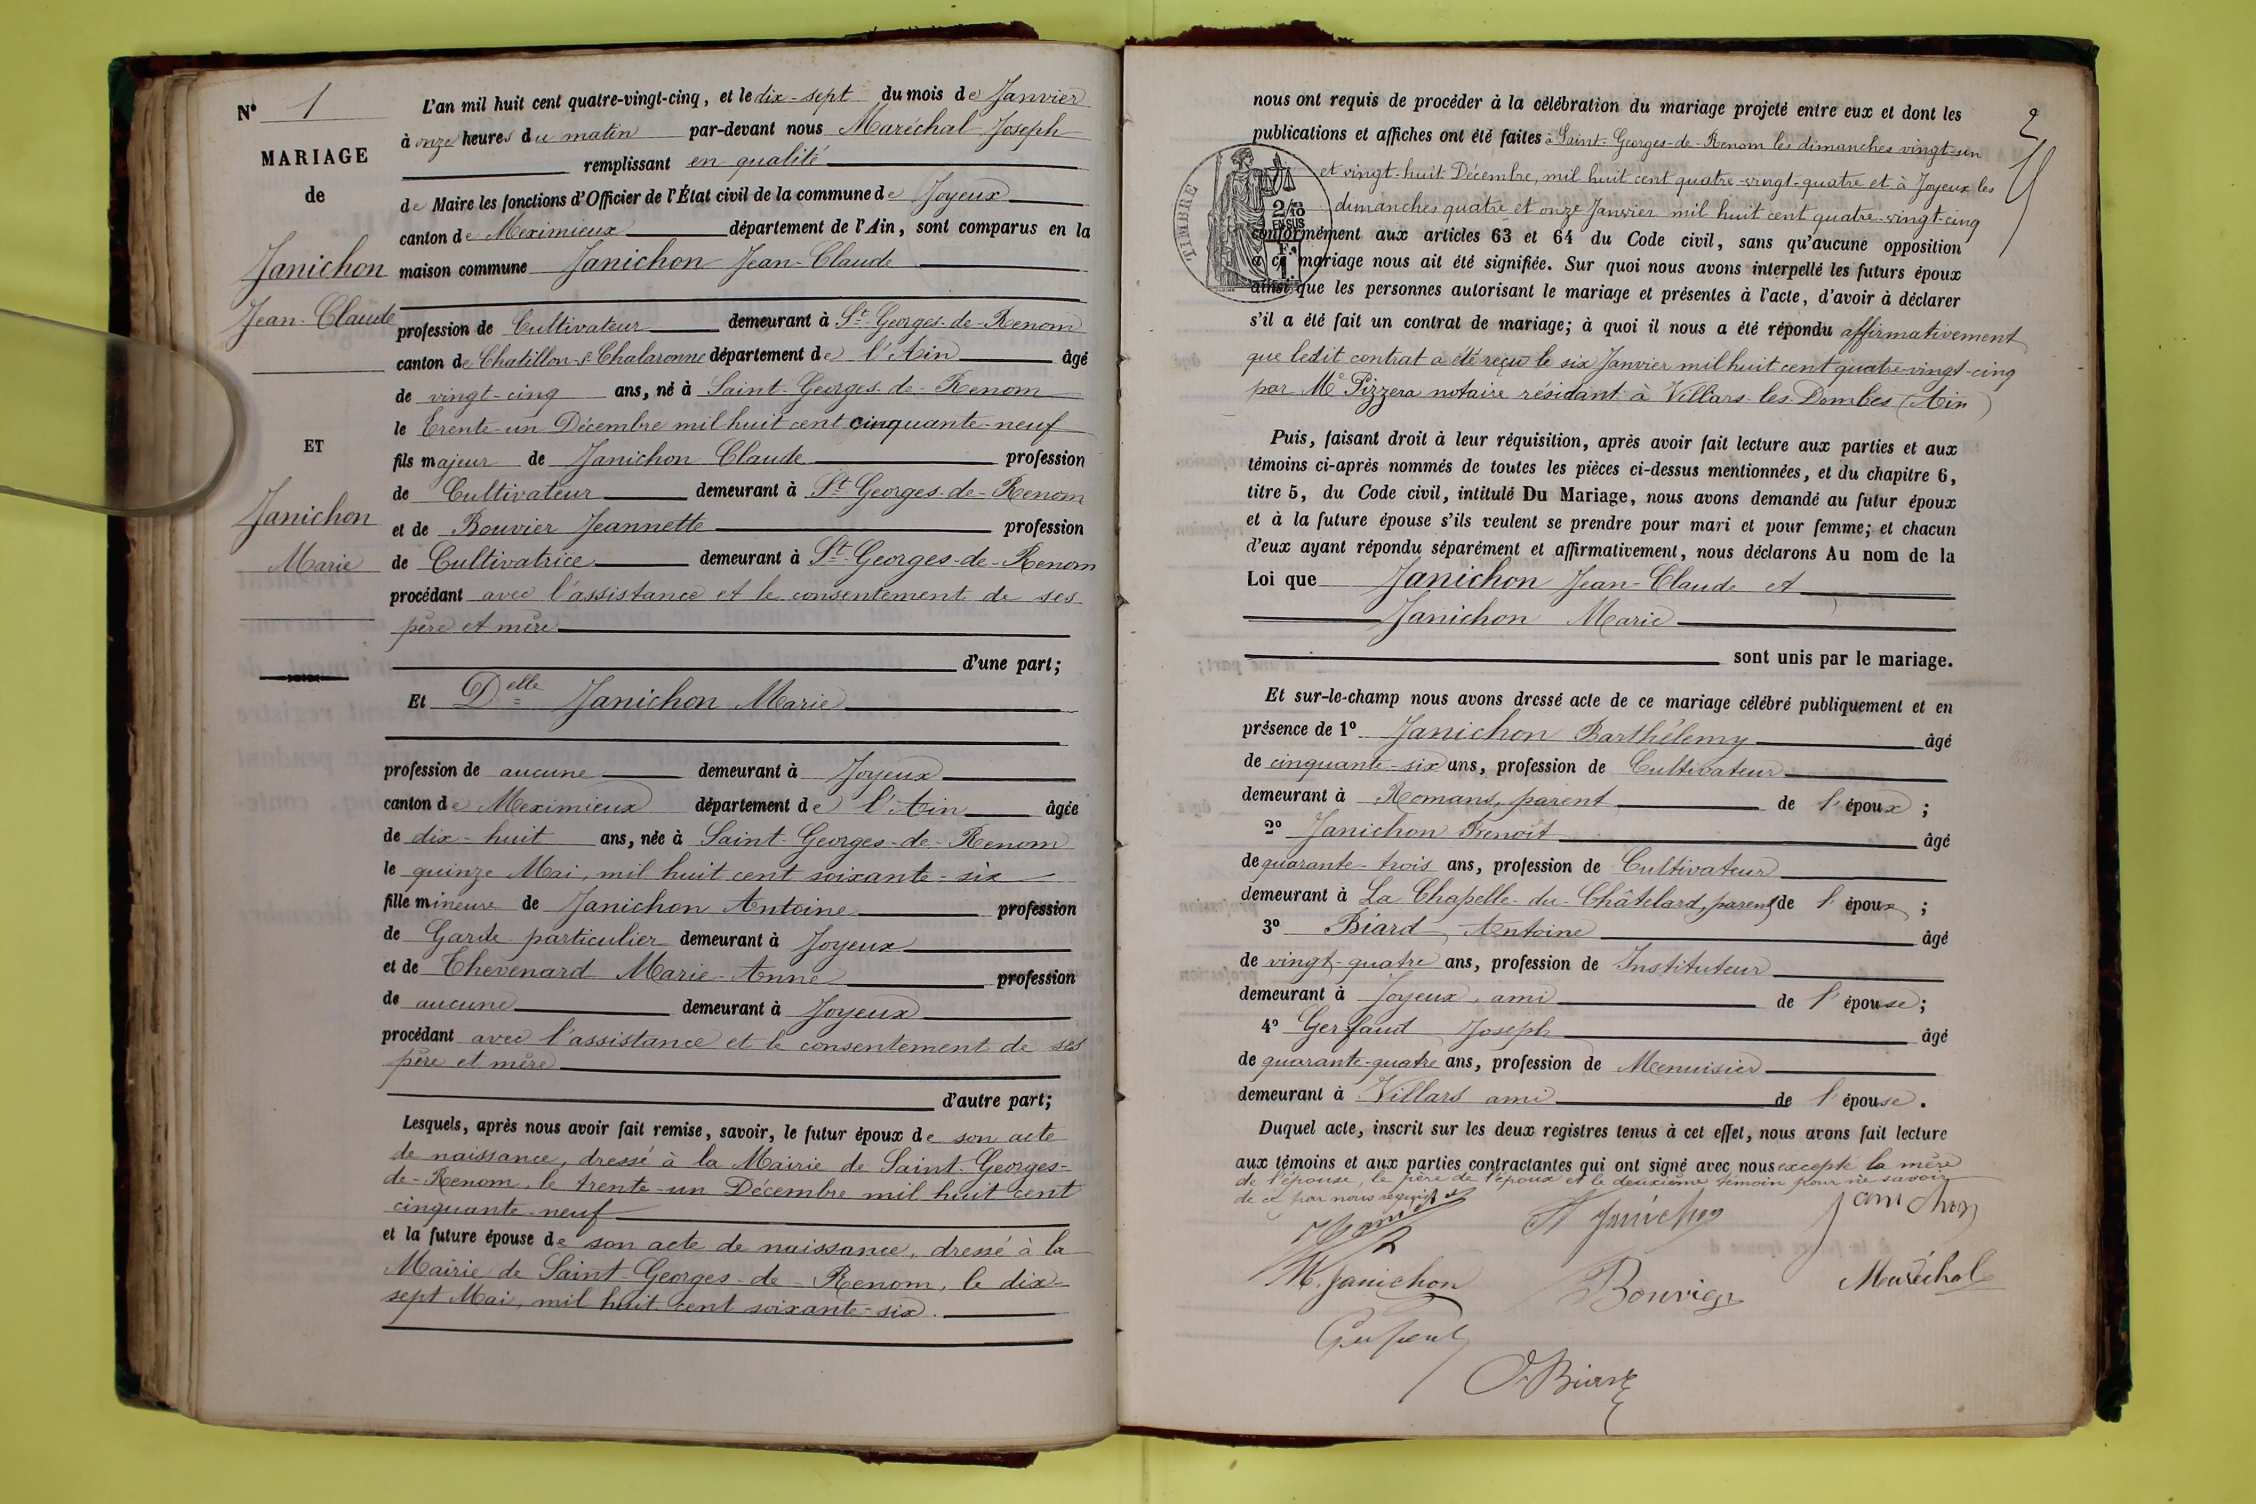 N° 1
MARIAGE
de
Janichon
Jean-Claude
ET
Janichon
Marie
L'an mil huit cent quatre-vingt-cinq, et le dix-sept du mois de Janvier
à onze heures du matin par-devant nous Maréchal Joseph
remplissant en qualité
de Maire les fonctions d'Officier de l'État civil de la commune de Joyeux
canton de Meximieux département de l'Ain, sont comparus en la
maison commune Janichon Jean-Claude
profession de Cultivateur demeurant à St Georges-de-Renom
canton de Chatillon-s-Chalaronne département de l'Ain âgé
de vingt-cinq ans, né à Saint-Georges-de-Renom
le trente-un Décembre mil huit cent cinquante-neuf
fils majeur de Janichon Claude profession
de Cultivateur demeurant à St Georges-de-Renom
et de Bouvier Jeannette profession
de Cultivatrice demeurant à St Georges-de-Renom
procédant avec l'assistance et le consentement de ses
père et mère
d'une part;
Et Delle Janichon Marie
profession de aucune demeurant à Joyeux
canton de Meximieux département de l'Ain âgée
de dix-huit ans, née à Saint-Georges-de-Renom
le quinze Mai, mil huit cent soixante-six
fille mineure de Janichon Antoine profession
de Garde particulier demeurant à Joyeux
et de Thevenard Marie-Anne profession
de aucune demeurant à Joyeux
procédant avec l'assistance et le consentement de ses
père et mère
d'autre part;
Lesquels, après nous avoir fait remise, savoir, le futur époux de son acte
de naissance, dressé à la Mairie de Saint-Georges-
de-Renom, le trente-un Décembre mil huit cent
cinquante-neuf
et la future épouse de son acte de naissance, dressé à la
Mairie de Saint-Georges-de-Renom, le dix-
sept Mai, mil huit cent soixante-six.
2
nous ont requis de procéder à la célébration du mariage projeté entre eux et dont les
publications et affiches ont été faites à Saint-Georges-de-Renom les dimanches vingt-un
et vingt-huit Décembre, mil huit cent quatre-vingt-quatre et à Joyeux les
dimanches quatre et onze Janvier mil huit cent quatre-vingt-cinq
TIMBRE
2/10
EN SUS
conformément aux articles 63 et 64 du Code civil, sans qu'aucune opposition
à ce mariage nous ait été signifiée. Sur quoi nous avons interpellé les futurs époux
ainsi que les personnes autorisant le mariage et présentes à l'acte, d'avoir à déclarer
s'il a été fait un contrat de mariage; à quoi il nous a été répondu affirmativement
que ledit contrat a été reçu le six Janvier mil huit cent quatre-vingt-cinq
par Me Pizzera notaire résidant à Villars-les-Dombes (Ain)
Puis, faisant droit à leur réquisition, après avoir fait lecture aux parties et aux
témoins ci-après nommés de toutes les pièces ci-dessus mentionnées, et du chapitre 6,
titre 5, du Code civil, intitulé Du Mariage, nous avons demandé au futur époux
et à la future épouse s'ils veulent se prendre pour mari et pour femme; et chacun
d'eux ayant répondu séparément et affirmativement, nous déclarons Au nom de la
Loi que Janichon Jean-Claude et
Janichon Marie
sont unis par le mariage.
Et sur-le-champ nous avons dressé acte de ce mariage célébré publiquement et en
présence de 1° Janichon Barthélemy âgé
de cinquante-six ans, profession de Cultivateur
demeurant à Romans, parent de l'époux ;
2° Janichon Benoît âgé
de quarante-trois ans, profession de Cultivateur
demeurant à La Chapelle-du-Châtelard, parent de l'époux ;
3° Biard Antoine âgé
de vingt-quatre ans, profession de Instituteur
demeurant à Joyeux, ami de l'épouse;
4° Gerfaud Joseph âgé
de quarante-quatre ans, profession de Menuisier
demeurant à Villars ami de l'épouse.
Duquel acte, inscrit sur les deux registres tenus à cet effet, nous avons fait lecture
aux témoins et aux parties contractantes qui ont signé avec nous excepté la mère
de l'épouse, le père de l'époux et le deuxième témoin pour ne savoir
de ce par nous requis
Janichon
M. Janichon
Bouvier
Maréchal
Biard